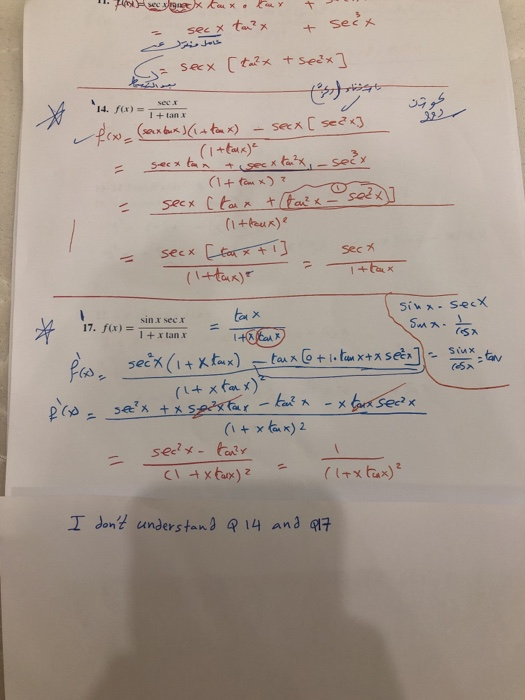 = sec x tan²x + sec³x
= sec x [tan²x + sec²x]
14. f(x) = sec x / 1 + tan x
f'(x) = (secx tanx)(1 + tan x) − sec x [sec²x] / (1 + tan x)²
= sec x tan x + sec x tan²x − sec³x / (1 + tan x)²
= sec x [tan x + (tan²x − sec²x)] / (1 + tan x)²
= sec x [tan x + 1] / (1 + tan x)² = sec x / 1 + tan x
17. f(x) = sin x sec x / 1 + x tan x = tan x / 1 + x tan x
sin x . sec x
sin x . 1 / cos x
sin x / cos x = tan
f'(x) = sec²x (1 + x tan x) − tan x [0 + 1. tan x + x sec²x] / (1 + x tan x)²
f'(x) = sec²x + x sec²x tan x − tan²x − x tan x sec²x / (1 + x tan x)2
= sec²x − tan²x / (1 + x tan x)² = 1 / (1 + x tan x)²
I don't understand Q 14 and Q17